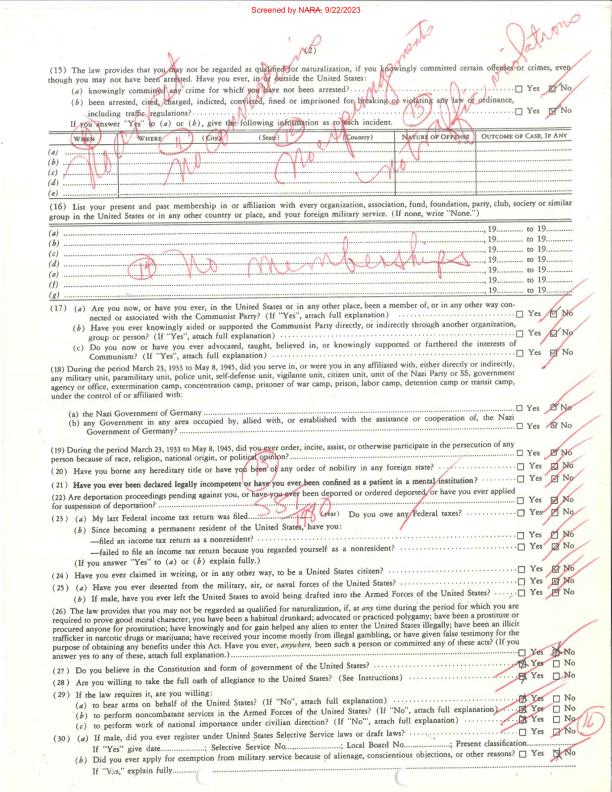 Screened by NARA, 9/22/2023
(2)
(15) The law provides that you may not be regarded as qualified for naturalization, if you knowingly committed certain offenses or crimes, even
though you may not have been arrested. Have you ever, in or outside the United States:
(a) knowingly committed any crime for which you have not been arrested? ☐ Yes ☒ No
(b) been arrested, cited, charged, indicted, convicted, fined or imprisoned for breaking or violating any law or ordinance,
including traffic regulations? ☐ Yes ☒ No
If you answer "Yes" to (a) or (b), give the following information as to each incident.
WHEN WHERE (City) (State) (Country) NATURE OF OFFENSE OUTCOME OF CASE, IF ANY
(a)
(b)
(c)
(d)
(e)
No arrests
11 no convictions
12 No expungments
13 no traffic violations
(16) List your present and past membership in or affiliation with every organization, association, fund, foundation, party, club, society or similar
group in the United States or in any other country or place, and your foreign military service. (If none, write "None.")
(a) , 19 to 19
(b) , 19 to 19
(c) , 19 to 19
(d) , 19 to 19
(e) , 19 to 19
(f) , 19 to 19
(g) , 19 to 19
14 No memberships
(17) (a) Are you now, or have you ever, in the United States or in any other place, been a member of, or in any other way con-
nected or associated with the Communist Party? (If "Yes", attach full explanation) ☐ Yes ☒ No
(b) Have you ever knowingly aided or supported the Communist Party directly, or indirectly through another organization,
group or person? (If "Yes", attach full explanation) ☐ Yes ☒ No
(c) Do you now or have you ever advocated, taught, believed in, or knowingly supported or furthered the interests of
Communism? (If "Yes", attach full explanation) ☐ Yes ☒ No
(18) During the period March 23, 1933 to May 8, 1945, did you serve in, or were you in any affiliated with, either directly or indirectly,
any military unit, paramilitary unit, police unit, self-defense unit, vigilante unit, citizen unit, unit of the Nazi Party or SS, government
agency or office, extermination camp, concentration camp, prisoner of war camp, prison, labor camp, detention camp or transit camp,
under the control of or affiliated with:
(a) the Nazi Government of Germany ☐ Yes ☒ No
(b) any Government in any area occupied by, allied with, or established with the assistance or cooperation of, the Nazi
Government of Germany? ☐ Yes ☒ No
(19) During the period March 23, 1933 to May 8, 1945, did you ever order, incite, assist, or otherwise participate in the persecution of any
person because of race, religion, national origin, or political opinion? ☐ Yes ☒ No
(20) Have you borne any hereditary title or have you been of any order of nobility in any foreign state? ☐ Yes ☒ No
(21) Have you ever been declared legally incompetent or have you ever been confined as a patient in a mental institution? ☐ Yes ☒ No
(22) Are deportation proceedings pending against you, or have you ever been deported or ordered deported, or have you ever applied
for suspension of deportation? ☐ Yes ☒ No
(23) (a) My last Federal income tax return was filed 1980 (year) Do you owe any Federal taxes? ☐ Yes ☒ No
(b) Since becoming a permanent resident of the United States, have you:
—filed an income tax return as a nonresident? ☐ Yes ☒ No
—failed to file an income tax return because you regarded yourself as a nonresident? ☐ Yes ☒ No
(If you answer "Yes" to (a) or (b) explain fully.)
(24) Have you ever claimed in writing, or in any other way, to be a United States citizen? ☐ Yes ☒ No
(25) (a) Have you ever deserted from the military, air, or naval forces of the United States? ☐ Yes ☒ No
(b) If male, have you ever left the United States to avoid being drafted into the Armed Forces of the United States? ☐ Yes ☒ No
(26) The law provides that you may not be regarded as qualified for naturalization, if, at any time during the period for which you are
required to prove good moral character, you have been a habitual drunkard; advocated or practiced polygamy; have been a prostitute or
procured anyone for prostitution; have knowingly and for gain helped any alien to enter the United States illegally; have been an illicit
trafficker in narcotic drugs or marijuana; have received your income mostly from illegal gambling, or have given false testimony for the
purpose of obtaining any benefits under this Act. Have you ever, anywhere, been such a person or committed any of these acts? (If you
answer yes to any of these, attach full explanation.) ☐ Yes ☒ No
(27) Do you believe in the Constitution and form of government of the United States? ☒ Yes ☐ No
(28) Are you willing to take the full oath of allegiance to the United States? (See Instructions) ☒ Yes ☐ No
(29) If the law requires it, are you willing:
(a) to bear arms on behalf of the United States? (If "No", attach full explanation) ☒ Yes ☐ No
(b) to perform noncombatant services in the Armed Forces of the United States? (If "No", attach full explanation) ☒ Yes ☐ No
(c) to perform work of national importance under civilian direction? (If "No", attach full explanation) ☒ Yes ☐ No
16
(30) (a) If male, did you ever register under United States Selective Service laws or draft laws? ☐ Yes ☐ No
If "Yes" give date ; Selective Service No. ; Local Board No. ; Present classification
(b) Did you ever apply for exemption from military service because of alienage, conscientious objections, or other reasons? ☐ Yes ☒ No
If "Yes," explain fully